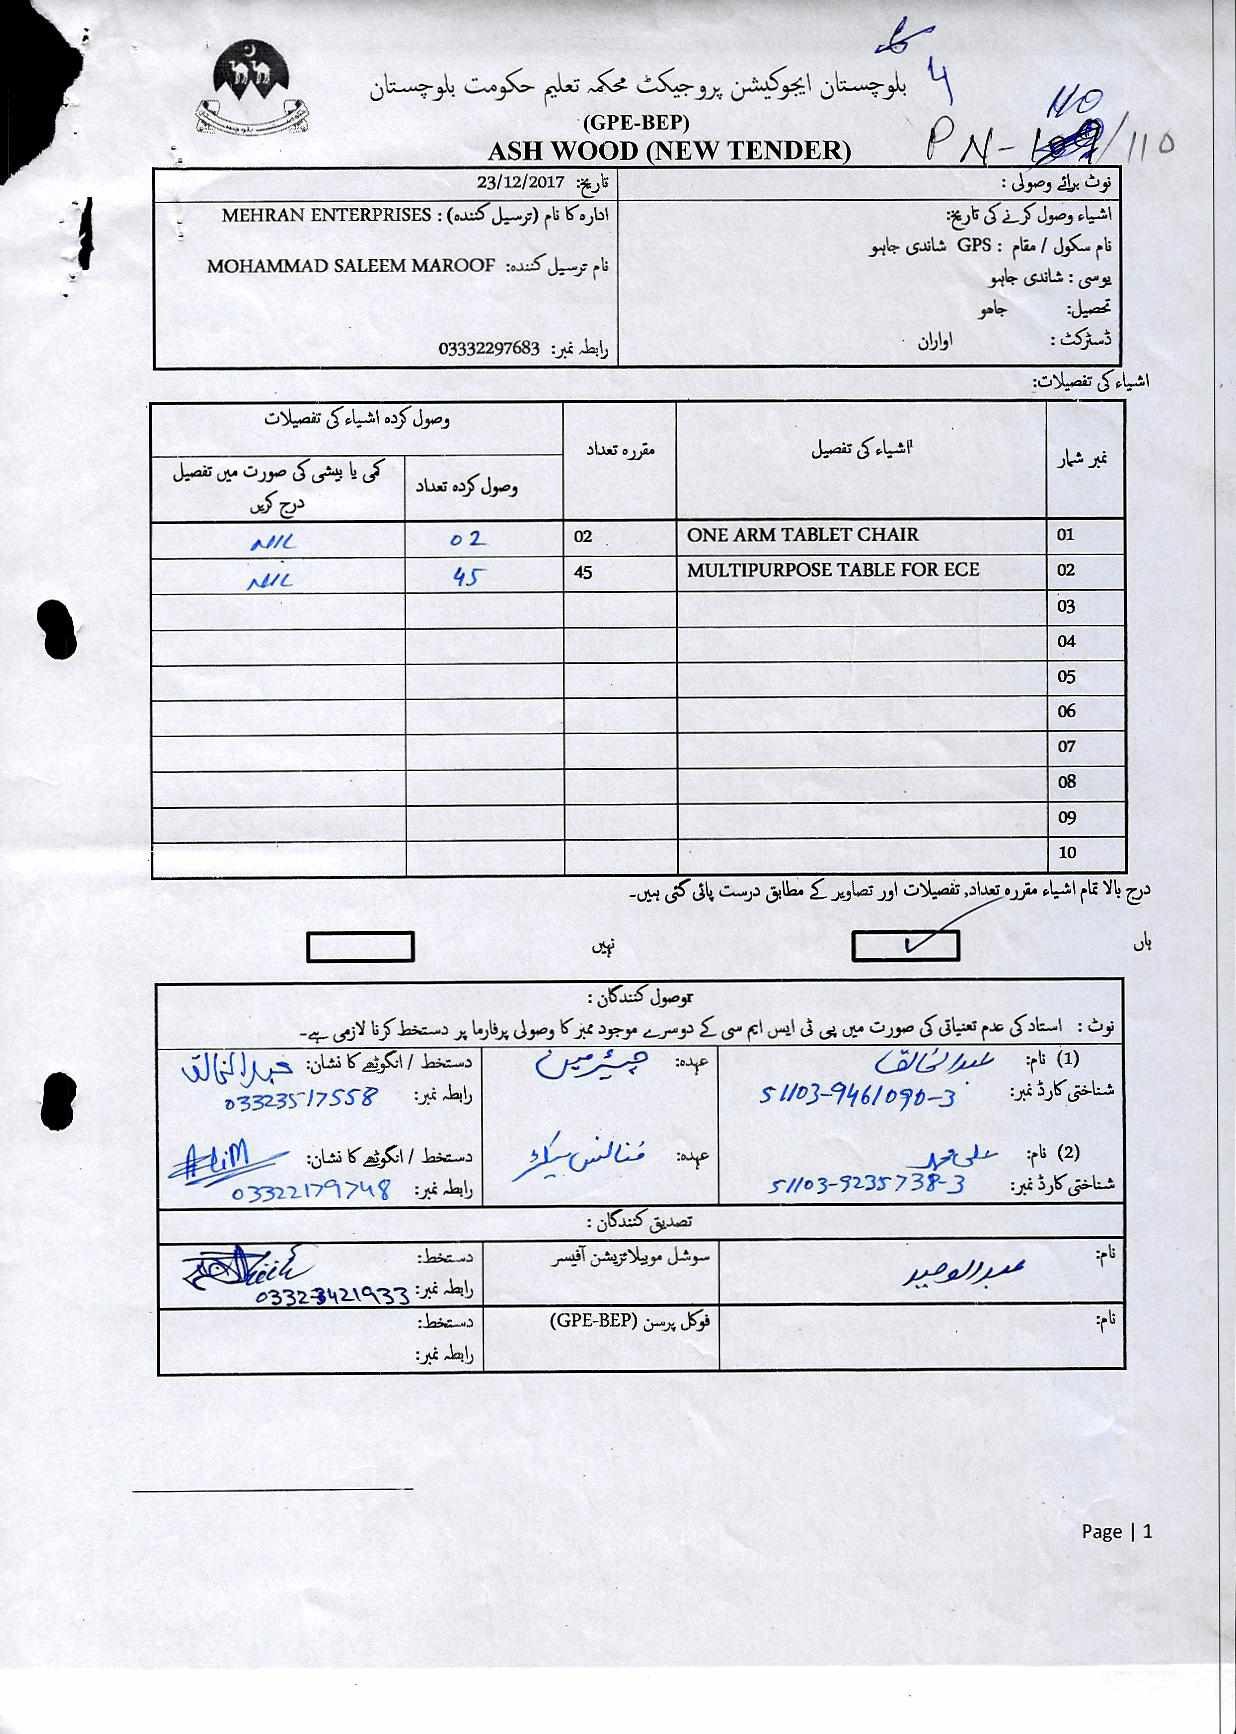 4
بلوچستان ایجوکیشن پروجیکٹ محکمہ تعلیم حکومت بلوچستان
110
(GPE-BEP)
PN- /110
ASH WOOD (NEW TENDER)
نوٹ برائے وصولی :
تاریخ: 23/12/2017
اشیاء وصول کرنے کی تاریخ:
نام سکول / مقام : GPS شاندی جاہو
یوسی : شاندی جاہو
تحصیل: جاھو
ڈسٹرکٹ : اواران
ادارہ کا نام (ترسیل کنندہ) : MEHRAN ENTERPRISES
نام ترسیل کنندہ: MOHAMMAD SALEEM MAROOF
رابطہ نمبر: 03332297683
اشیاء کی تفصیلات:
نمبر شمار اشیاء کی تفصیل مقررہ تعداد وصول کردہ اشیاء کی تفصیلات
وصول کردہ تعداد کمی یا بیشی کی صورت میں تفصیل درج کریں
01 ONE ARM TABLET CHAIR 02 02 NIL
02 MULTIPURPOSE TABLE FOR ECE 45 45 NIL
03
04
05
06
07
08
09
10
درج بالا تمام اشیاء مقررہ تعداد, تفصیلات اور تصاویر کے مطابق درست پائی گئی ہیں۔
ہاں نہیں
وصول کنندگان :
نوٹ : استاد کی عدم تعنیاتی کی صورت میں پی ٹی ایس ایم سی کے دوسرے موجود ممبز کا وصولی پرفارما پر دستخط کرنا لازمی ہے۔
(1) نام: عبدالخالق عہدہ: چیئرمین دستخط / انگوٹھے کا نشان: عبدالخالق
شناختی کارڈ نمبر: 51103-9461090-3 رابطہ نمبر: 03323517558
(2) نام: علی محمد عہدہ: فنانس سیکر دستخط / انگوٹھے کا نشان: ALiM
شناختی کارڈ نمبر: 51103-5235738-3 رابطہ نمبر: 03322179748
تصدیق کنندگان :
نام: عبدالوحید سوشل موبیلائزیشن آفیسر دستخط:
رابطہ نمبر: 03323421933
نام: فوکل پرسن (GPE-BEP) دستخط:
رابطہ نمبر:
Page | 1